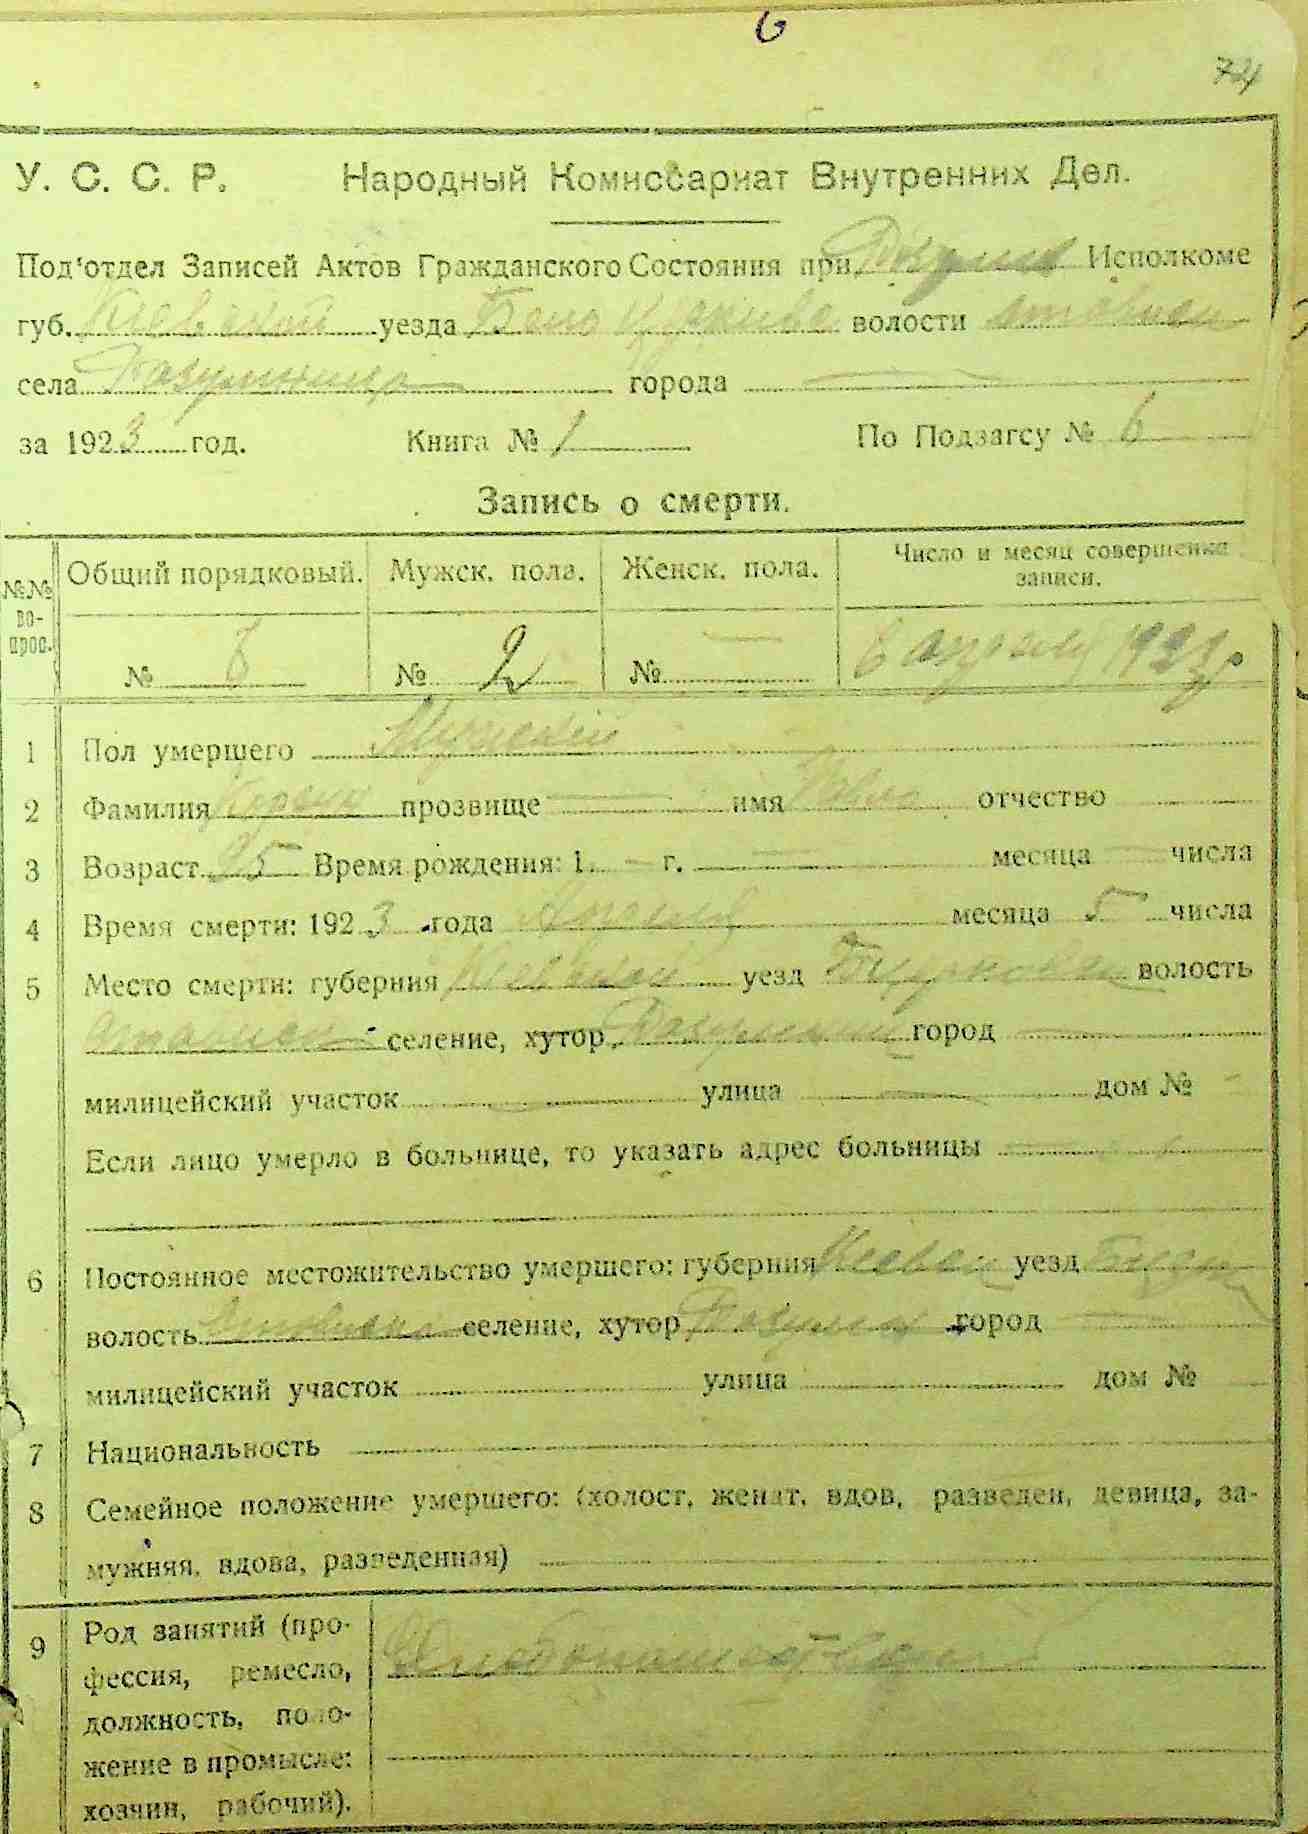 6
74
У. С. С. Р. Народный Комиссариат Внутренних Дел.
Под'отдел Записей Актов Гражданского Состояния при Исполкоме
губ. Киевской уезда Бело Церкивс волости
села города
за 1923 год. Книга № 1 По Подзагсу № 6
Запись о смерти.
№№ вопрос. Общий порядковый. Мужск. пола. Женск. пола. Число и месяц совершения записи.
№ 6 № 2 № — 6 апреля 1923 г.
1 Пол умершего Мужской
2 Фамилия прозвище — имя отчество
3 Возраст Время рождения: 1 — г. — месяца — числа
4 Время смерти: 1923 года Апреля месяца 5 числа
5 Место смерти: губерния Киевской уезд волость
селение, хутор город —
милицейский участок — улица — дом № —
Если лицо умерло в больнице, то указать адрес больницы —
6 Постоянное местожительство умершего: губерния Киевск уезд
волость селение, хутор город —
милицейский участок улица дом №
7 Национальность
8 Семейное положение умершего: (холост, женат, вдов, разведен, девица, за-
мужняя, вдова, разведенная)
9 Род занятий (про-
фессия, ремесло,
должность, поло-
жение в промысле:
хозяин, рабочий).